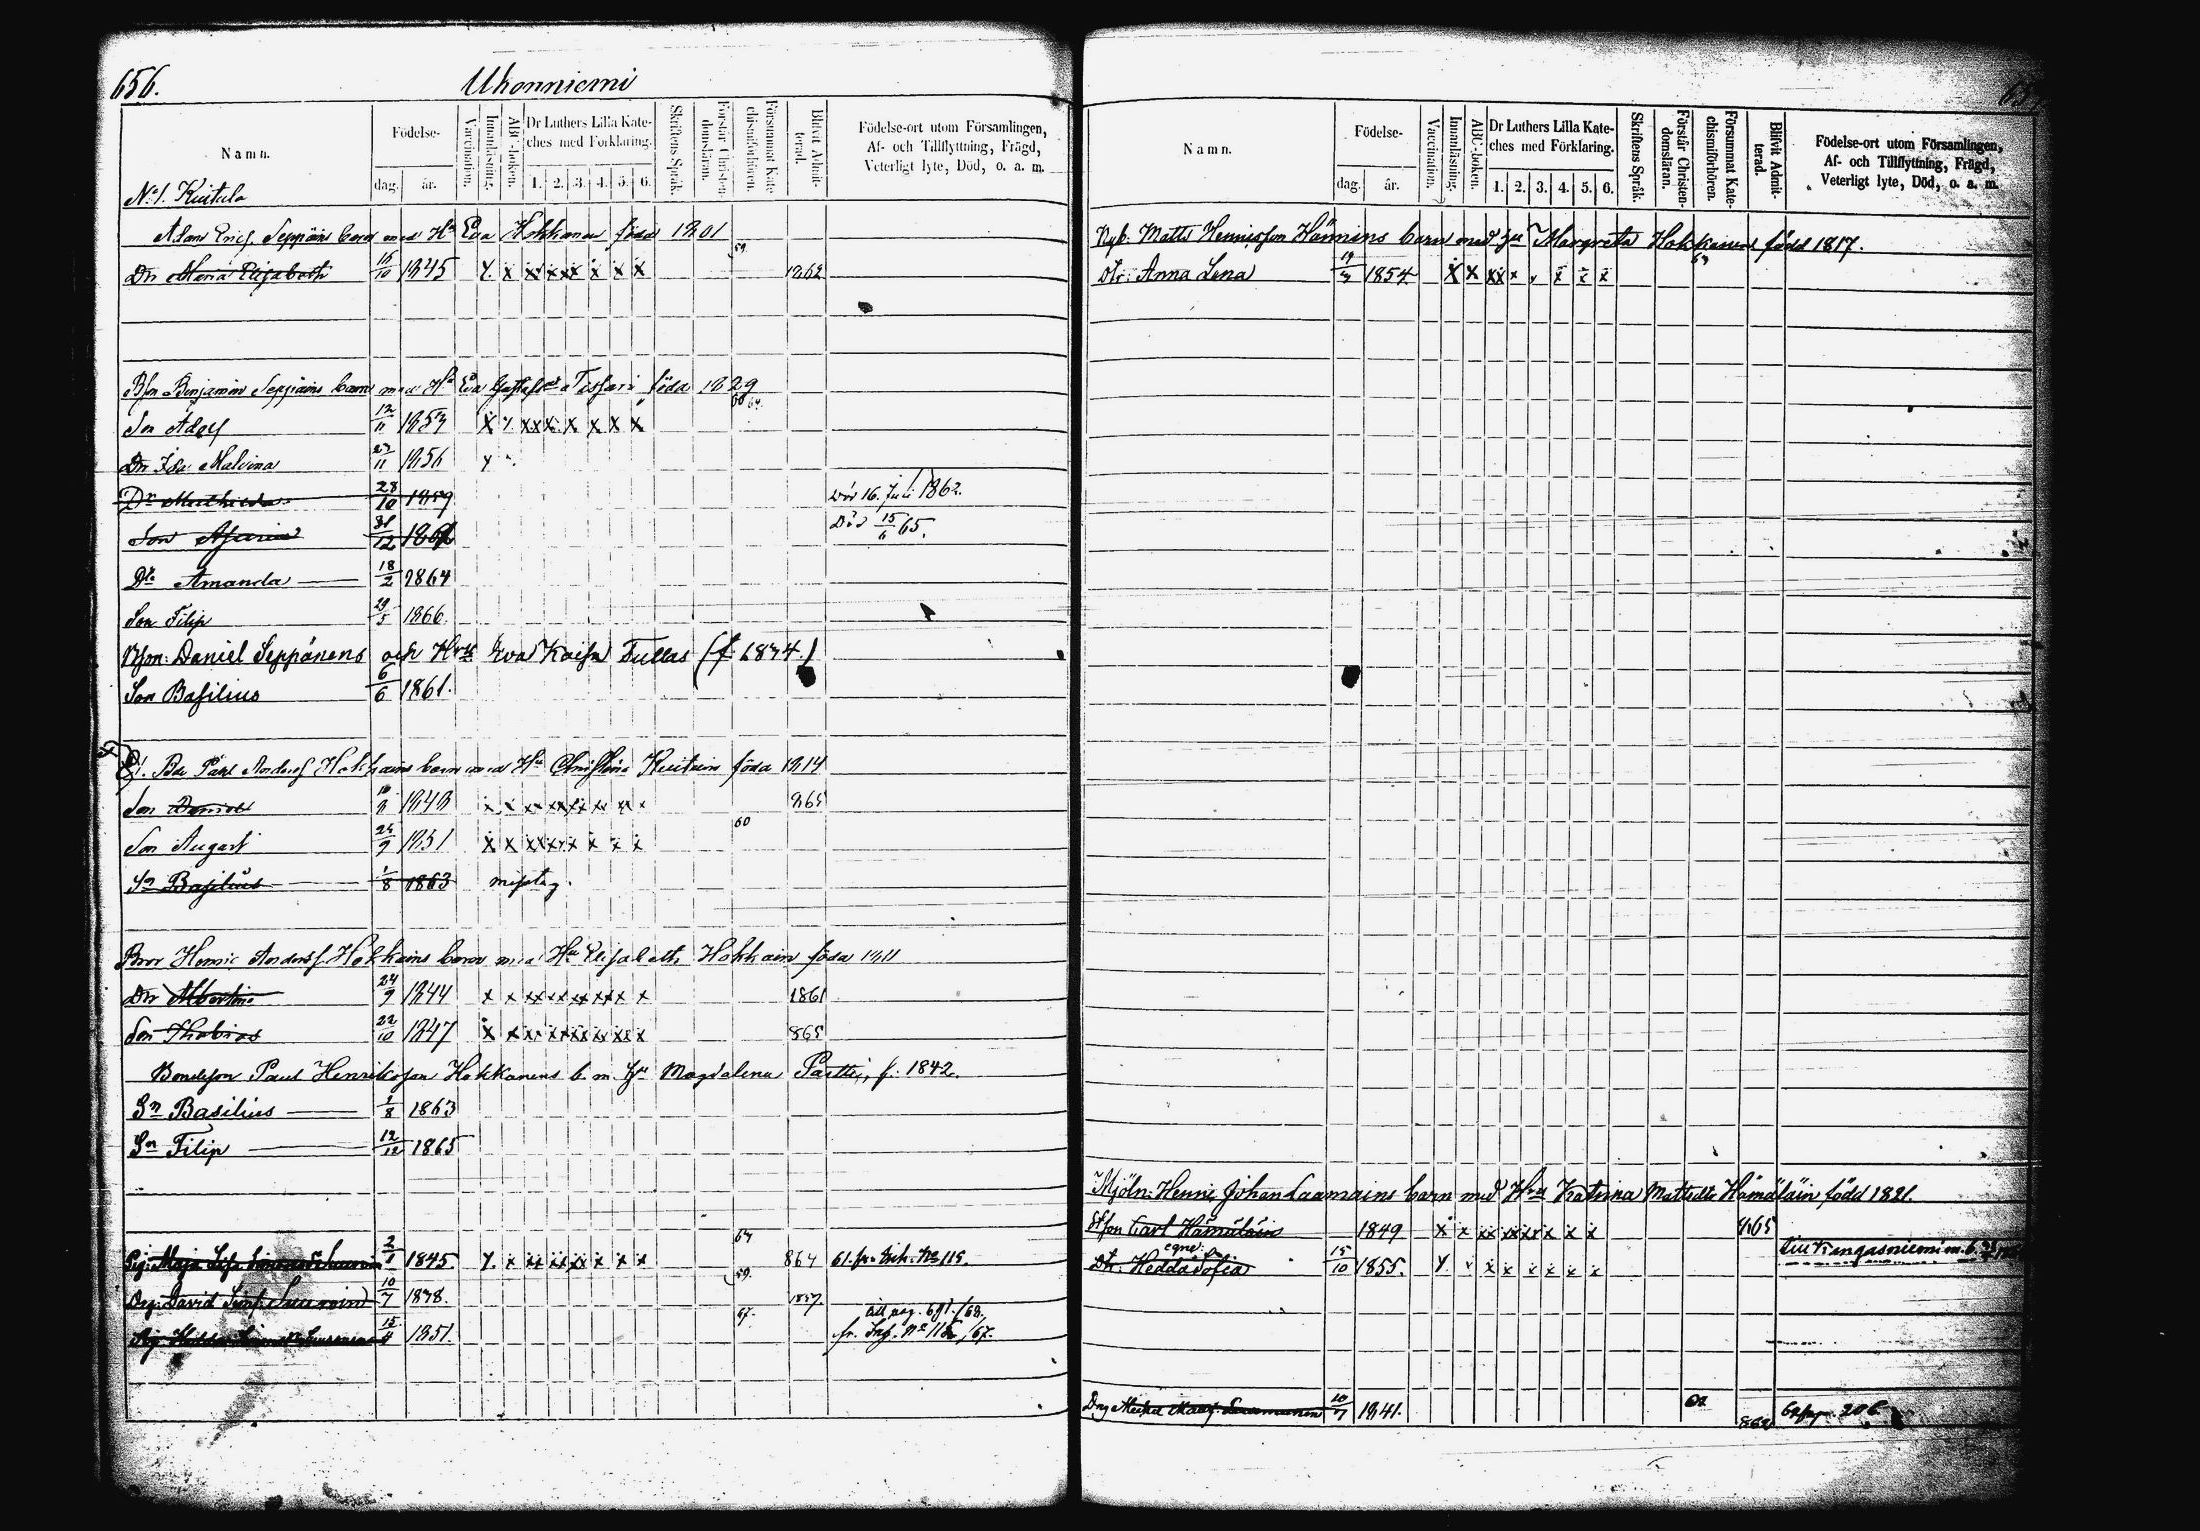 656.
Uhonniemi
Namn.
Födelse-
dag.
år.
Vaccination.
Innanläsning.
ABC-boken.
Dr Luthers Lilla Kate-
ches med Förklaring.
1. 2. 3. 4. 5. 6.
Skriftens Språk.
Förstår Christen-
domsläran.
Försummat Kate-
chismiförhören.
Blifvit Admit-
terad.
Födelse-ort utom Församlingen,
Af- och Tillflyttning, Frägd,
Veterligt lyte, Död, o. a. m.
No 1. Kuitula
Adam Erics. Seppäins barn med Hu Eva Hokkanen föda 1801
59.
Dr Maria Elisabeth 16/10 1845 x x xx xxx x x x 1862
Bson Benjamin Seppäins barn med Hu Eva föda 1829
60 64.
Son Adolf 12/11 1853 x x xx x x x x x
Dr Ida Malvina 27/11 1856
Dr Mathilda 28/10 1859 Död 16. Juli 1862.
Son 31/12 186 Död 15/6 65.
Dr Amanda 18/2 1864
Son Filip 29/5 1866
Bson: Daniel Seppänens och Hru Eva Kaisa Tullas (f. 1834.)
Son Basilius 6/6 1861.
Bdr Påhl Anders. Hokkains barn med Hu Christina Kuitein föda 1814
Son Daniel 10/2 1848 x x xx xx xx xx xx x 865
60
Son August 24/9 1851 x x xx xx x x x x
Sn Basilius 1/8 1863 misstag.
Bror Henric Anders. Hokkains barn med Hu Elisabeth Hokkain föda 1811
Dr Albertina 24/9 1844 x x xx xx xx xx x x 1861
Son Thobias 22/10 1847 x x xx xx xx xx xx x 865
Bondeson Paul Henriksson Hokkanens b. m. Hu Magdalena Partti, f. 1842.
Sn Basilius 1/8 1863
Sn Filip 12/12 1865
64
Pig. Maja 1845 x x xx xx xx x x x 864 61. fr. No 115.
59.
Drg: David 10/7 1838. 1857.
till pag. 691./68.
67.
15/4 1851. fr. /67.
Namn.
Födelse-
dag.
år.
Vaccination.
Innanläsning.
ABC-boken.
Dr Luthers Lilla Kate-
ches med Förklaring.
1. 2. 3. 4. 5. 6.
Skriftens Språk.
Förstår Christen-
domsläran.
Försummat Kate-
chismiförhören.
Blifvit Admit-
terad.
Födelse-ort utom Församlingen,
Af- och Tillflyttning, Frägd,
Veterligt lyte, Död, o. a. m.
Nyb. Matts Henricsson Hänninens barn med hu Margreta Hokkanen född 1817.
Dtr: Anna Lena 1854 x x xx x x x x x
Mjöln: Henric Johan Laamains barn med Hru Katrina Mattsdtr Hämäläin född 1821.
Stson Carl Hämäläin 1849 x x xx xx xx x x x 865
egne:
Dtr. Hedda Sofia 15/10 1855. x x x x x x x x Till Kangasniemi m. b.
Drg 10/7 1841. 862 206